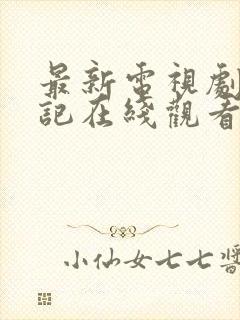 最新電視劇
記在綫觀看
小仙女七七醬